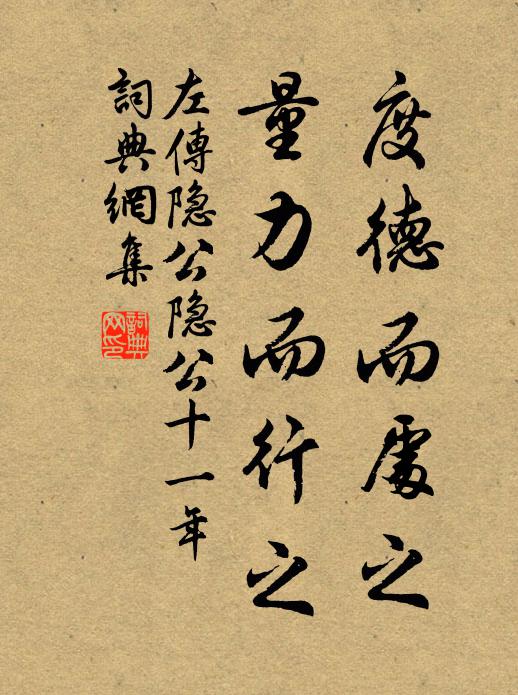 度德而處之
量力而行之
左傳隐公隐公十一年
詞典網集
詞典網印